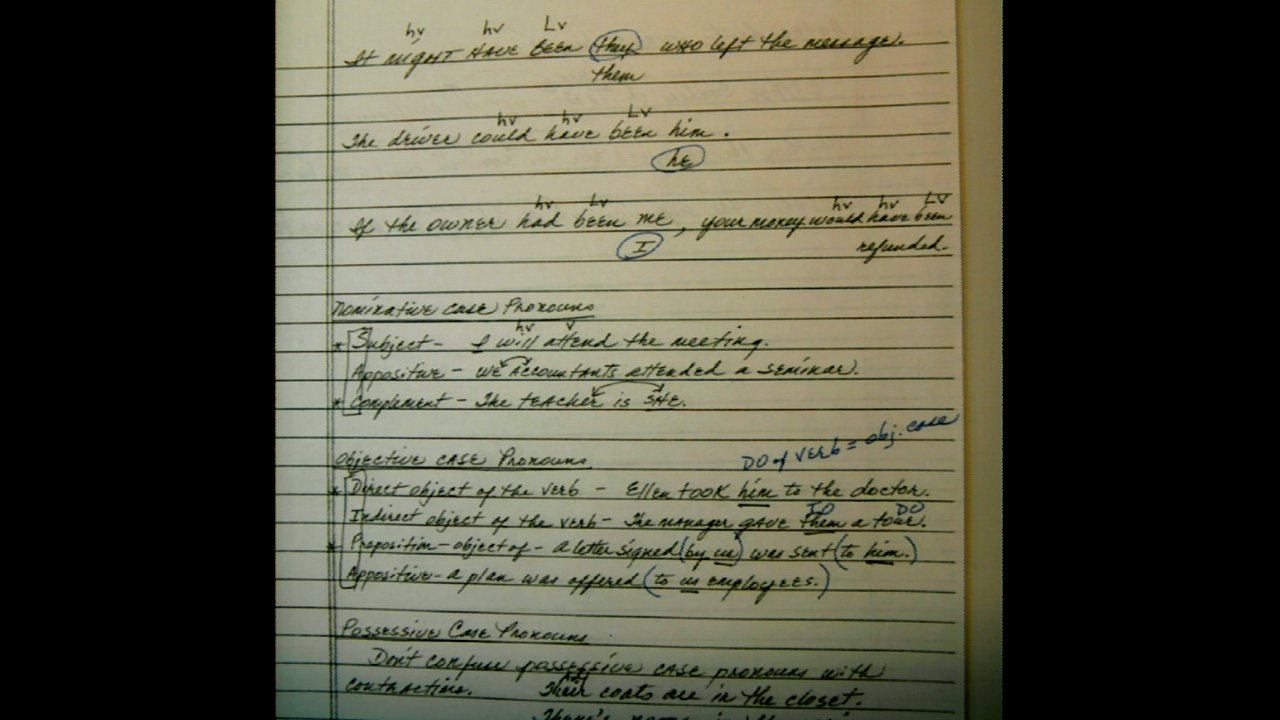 hv hv Lv
It might have been they who left the message.
them
hv hv Lv
The driver could have been him.
he
hv Lv hv hv Lv
If the owner had been me, your money would have been
I refunded.
Nominative Case Pronouns
hv v
* Subject - I will attend the meeting.
Appositive - We accountants attended a seminar.
* Complement - The teacher is she.
DO of verb = obj. case
Objective Case Pronouns
* Direct object of the verb - Ellen took him to the doctor.
IO DO
Indirect object of the verb - The manager gave them a tour.
* Preposition - object of - a letter signed (by us) was sent (to him.)
Appositive - a plan was offered (to us employees.)
Possessive Case Pronouns
Don't confuse possessive case pronouns with
contractions. Their coats are in the closet.